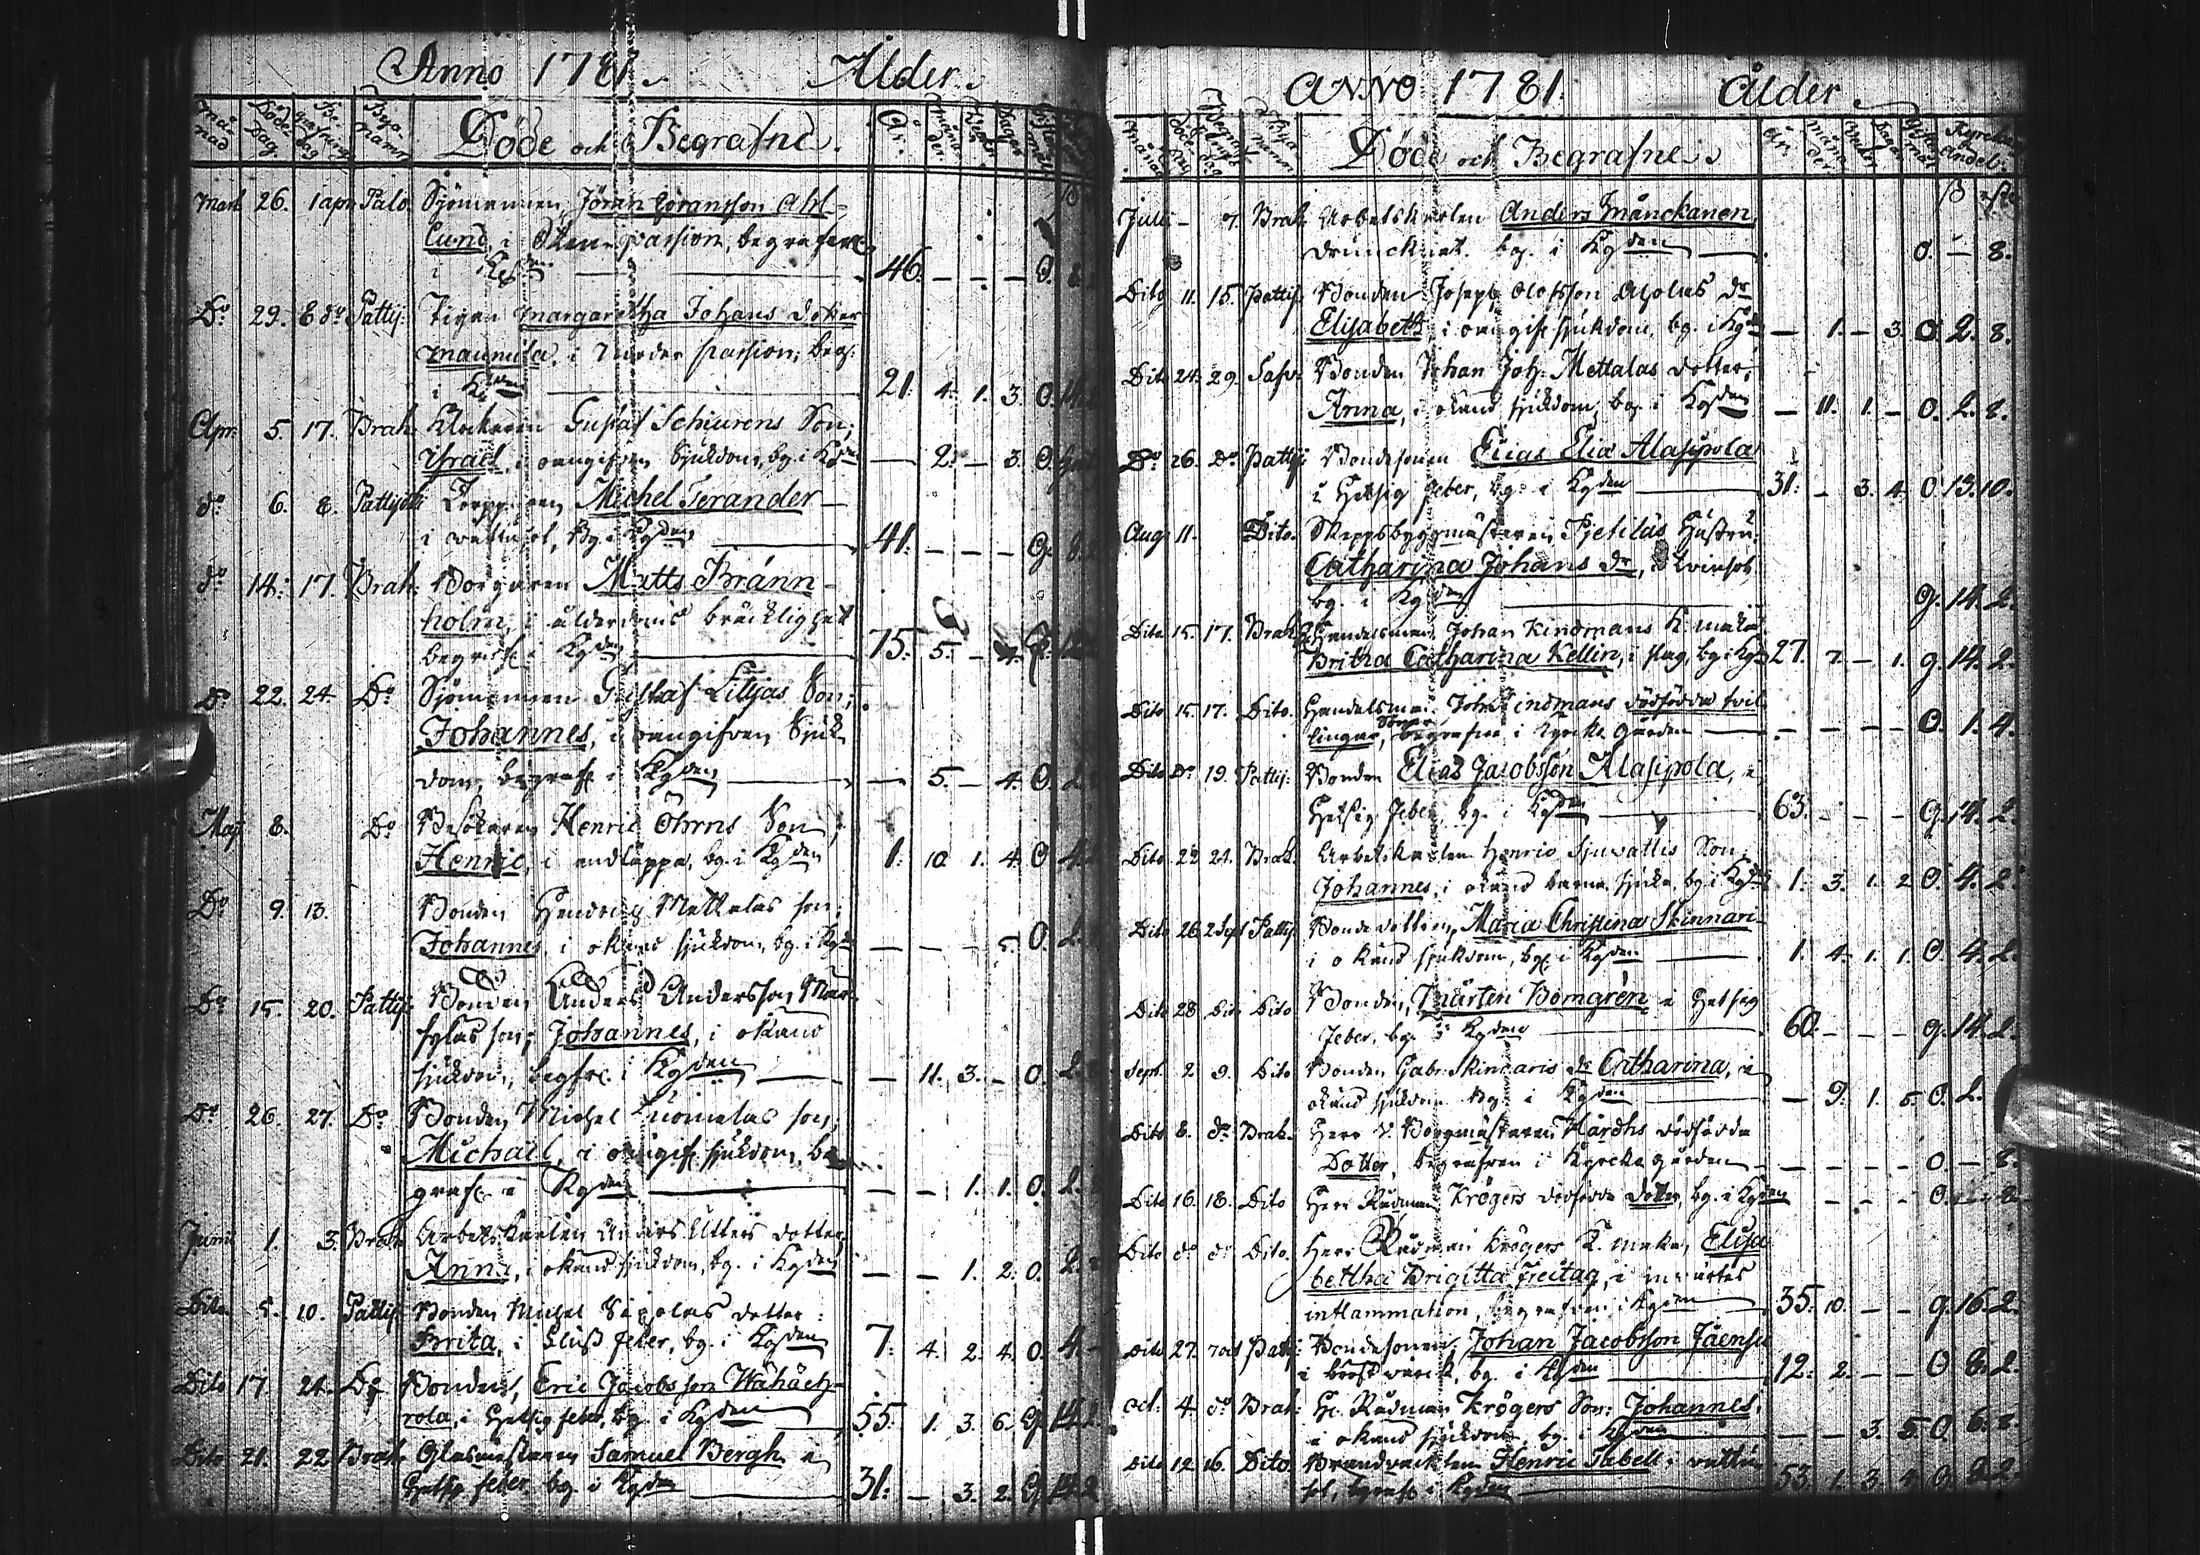 Anno 1781. Ålder.
Månad Döde Dag. Begrafnings dag Byanamn Döde och Begrafne. År. Månader. Veckor Dagar
Mart 26. 1 apr Palo. Sjömannen Jöran Göransson Ahl-
lund, i passion, begrafven
i Kgden 46. — — — O.
Do 29. 8 do Pattij: Pigan Margaretha Johans dotter
Maunula, i moder passion, begr:
i Kgden 21. 4. 1. 3. O. 14.
Apr: 5. 17. Brah. Klockaren Gustaf Schiurens Son;
Israel, i oangifven Sjukdom, bg. i Kgden — 2. — 3. O.
do 6. 8. Pattijoki Michel Terander
i bg. i Kgden 41. — — — G. 8.
do 14. 17. Brah: Borgaren Matts Bränn-
holm, i ålderdoms bräcklighet
begrafv: i Kgden 75. 5. — 4. G.
Do 22. 24. Do Sjömannen Gustaf Liljas Son;
Johannes, i oangifven Sjuk-
dom, begrafv i Kgden — 5. — 4. O. 2.
Maj 8. Do Besökaren Henric Öhrns Son;
Henric, i andtäppa, bg. i Kgden 1. 10. 1. 4. O. 4.
Do 9. 13. Bonden Hendric Mattalas son;
Johannes, i okänd sjukdom, bg. i Kgden — — — 5. O. 2.
Do 15. 20. Pattij: Bonden Anders Andersson
son; Johannes, i okänd
sjukdom, begfr. i Kgden — 11. 3. — O. 2.
Do 26. 27. Do Bonden Michel Tuomelas son;
Michael, i oangifv. sjukdom, be-
grafv. i Kgden — — 1. 1. O. 2.
Junii 1. 3. Brah Arbets Karlen Anders Utters dotter
Anna, i okänd sjukdom, bg. i Kgden — — 1. 2. O. 2.
Dito. 5. 10. Pattij. Bonden Michel Sipolas dotter:
Brita, i fluss feber, bg. i Kgden 7. 4. 2. 4. O. 4.
Dito 17. 24. Do Bonden, Eric Jacobsson Wähäch-
rola, i Hetsig feber, bg. i Kgden 55. 1. 3. 6. G. 14. 2.
Dito 21. 22. Brah. Glasmästaren Samuel Bergh i
Hetsig feber, bg. i Kgden 31. — 3. 2. G. 14. 2.
ANNO 1781. Ålder
Månad Döde dag Begrafnings dag Byanamn Döde och Begrafne. År. Månader Veckor Dagar Kyrckans andel:
Julii — 7. Brah. Arbetskarlen Anders Månckanen,
druncknat. bg. i Kgden O. — 8.
Dito 11. 15. Pattij. Bonden Joseph Olofsson Aholas dr
Elisabeth i oangifv. sjukdom, bg. i Kgden — 1. — 3. O. 2. 8.
Dito 24. 29. Bonden Johan Joh: Mettalas dotter;
Anna, i okänd sjukdom, bg. i Kgden — 11. 1. — O. 2. 8.
Do 26. Do Pattij Bondesonen Elias Elia Alasipola
i Hetsig feber, bg. i Kgden 31. — 3. 4. O. 13. 10.
Aug: 11. Dito. Skeppsbyggmästaren Pietiläs Hustru:
Catharina Johans dr,
bg. i Kgden G. 14. 2.
Dito 15. 17. Brah. Handelsman Johan Kindmans K. maka
Britha Catharina Kellin, i bg. i Kgden 27. 7. — 1. G. 14. 2.
Dito 15. 17. Dito. Handelsman Joh. Kindmans dödfödda tvil-
lingar, Söner begrafne i Kyrcke Gården — — — — O. 1. 4.
Dito Do 19. Pattij: Bonden Elias Jacobsson Alasipola, i
Hetsig feber, bg. i Kgden 63. — — — G. 14. 2.
Dito 22 24. Brah. Arbetskarlen Henric Sjuvattis Son;
Johannes, i okänd barna sjuka, bg. i Kgden 1. 3. 1. 2. O. 4. 2.
Dito 26 2 Sept Pattij. Bonde dottren Maria Christina Skinnari
i okänd sjukdom, bg. i Kgden 1. 4. 1. 1. O. 4. 2.
Dito 28 Dito Dito Bonden, Mårten Bomgrén i Hetsig
feber, bg. i Kgden 60. — — — G. 14. 2.
Sept. 2 9. Dito Bonden Gabr. Skinnaris dr Catharina, i
okänd sjukdom bg. i Kgden — 9. 1. 5. O. 2.
Dito 8. do Brah. Herr V. Borgmästaren Hårdhs dödfödda
Dotter, begrafven i Kyrcke gården — — — — O. — 8.
Dito 16. 18. Dito Herr Rådman Krögers dödfödda dotter, bg. i Kgden — — — O. — 8.
Dito do do Dito. Herr Rådman Krögers K. maka, Elisa
bettha Brigitta Freitag, i invärtes
inflammation, begrafven i Kgden 35. 10. — — G. 16. 2.
Dito 27. 7 oct Patt: Bondesonen, Johan Jacobsson Jäensu
i bröst värck, bg. i Kgden 12. 2. — — O. 6. 2.
Oct: 4. do Brah: Hr. Rådman Krögers Son: Johannes,
i okänd sjukdom, bg. i Kgden — — 3. 5. O. 6. 2.
Dito 12 16. Dito. Brandvackten Henric Tabell, i vattu-
sot, begrafv. i Kgden 53. 1. 3. 4. G. 8. 2.